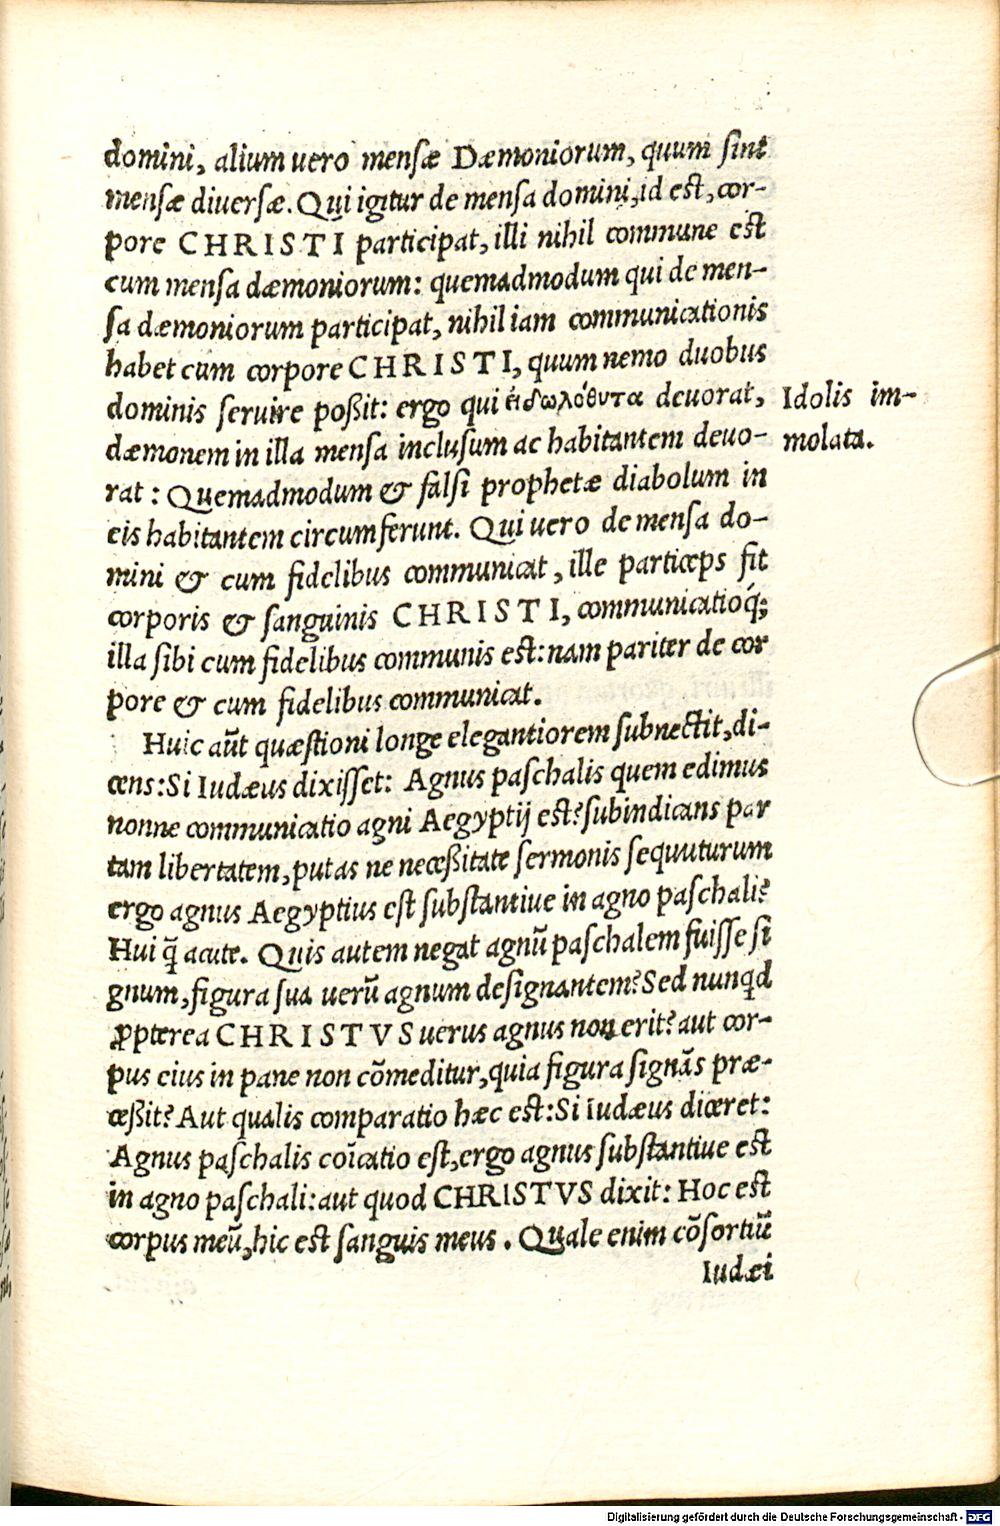 domini, alium uero mensæ Dæmoniorum, quum sint
mensæ diuersæ. Qui igitur de mensa domini, id est, cor-
pore CHRISTI participat, illi nihil commune est
cum mensa dæmoniorum: quemadmodum qui de men-
sa dæmoniorum participat, nihil iam communicationis
habet cum corpore CHRISTI, quum nemo duobus
dominis seruire poßit: ergo qui εἰδωλόθυτα deuorat,
Idolis im-
dæmonem in illa mensa inclusum ac habitantem deuo-
molata.
rat: Quemadmodum & falsi prophetæ diabolum in
eis habitantem circumferunt. Qui uero de mensa do-
mini & cum fidelibus communicat, ille particeps fit
corporis & sanguinis CHRISTI, communicatioq́;
illa sibi cum fidelibus communis est: nam pariter de cor
pore & cum fidelibus communicat.
Huic aũt quæstioni longe elegantiorem subnectit, di-
cens: Si Iudæus dixisset: Agnus paschalis quem edimus
nonne communicatio agni Aegyptij est? subindicans par
tam libertatem, putas ne neceßitate sermonis sequuturum
ergo agnus Aegyptius est substantiue in agno paschali?
Hui q̃ acute. Quis autem negat agnũ paschalem fuisse si
gnum, figura sua uerũ agnum designantem? Sed nunqd
ꝓpterea CHRISTVS uerus agnus non erit? aut cor-
pus eius in pane non cõmeditur, quia figura signãs præ-
ceßit? Aut qualis comparatio hæc est: Si Iudæus diceret:
Agnus paschalis coĩcatio est, ergo agnus substantiue est
in agno paschali: aut quod CHRISTVS dixit: Hoc est
corpus meũ, hic est sanguis meus. Quale enim cõsortiũ
Iudæi
Digitalisierung gefördert durch die Deutsche Forschungsgemeinschaft - DFG